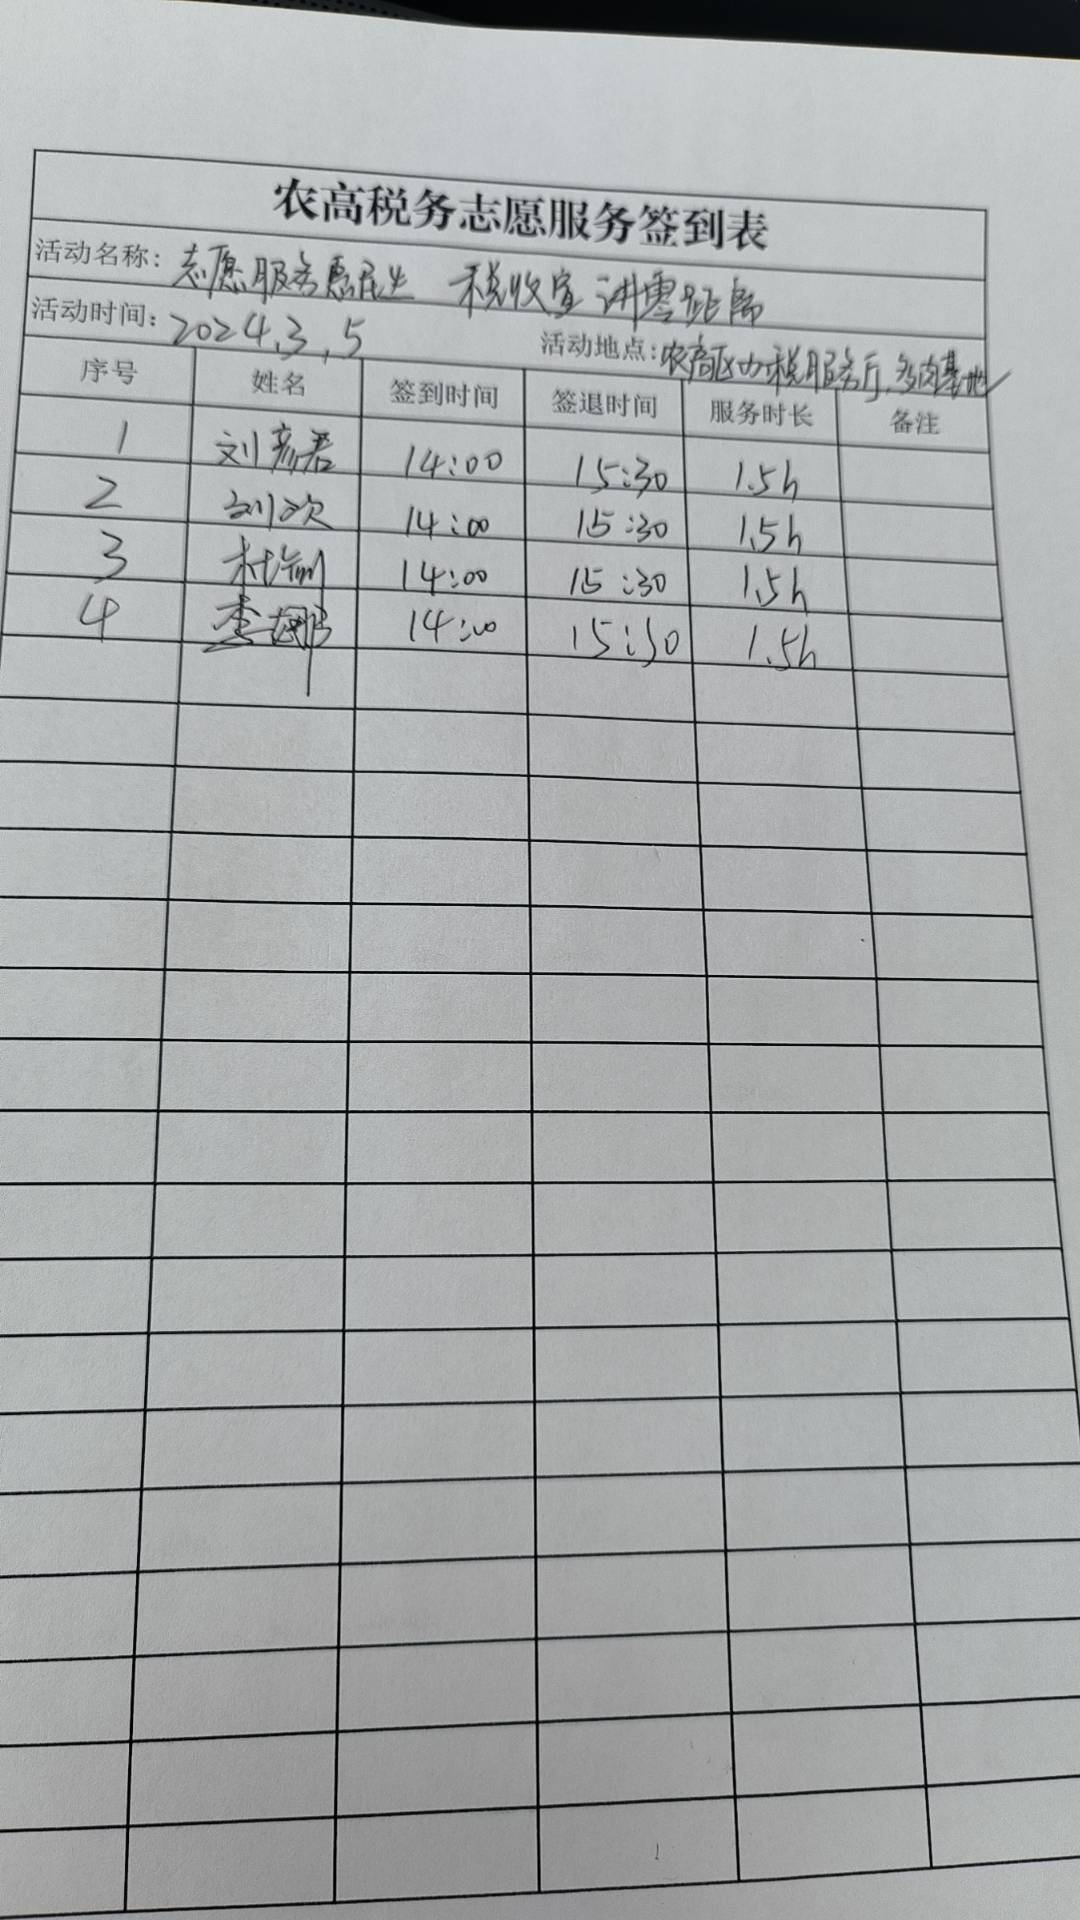 农高税务志愿服务签到表
活动名称: 志愿服务惠民生 税收宣讲零距离
活动时间: 2024.3.5 活动地点: 农高区办税服务厅、多肉基地
序号 姓名 签到时间 签退时间 服务时长 备注
1 刘彦君 14:00 15:30 1.5h
2 刘欢 14:00 15:30 1.5h
3 杜 14:00 15:30 1.5h
4 李 14:00 15:30 1.5h